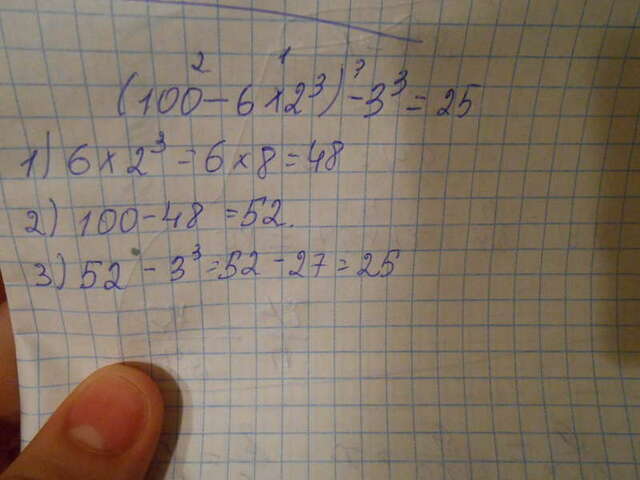 2 1 3
(100-6×2³)-3³=25
1) 6×2³=6×8=48
2) 100-48=52.
3) 52-3³=52-27=25